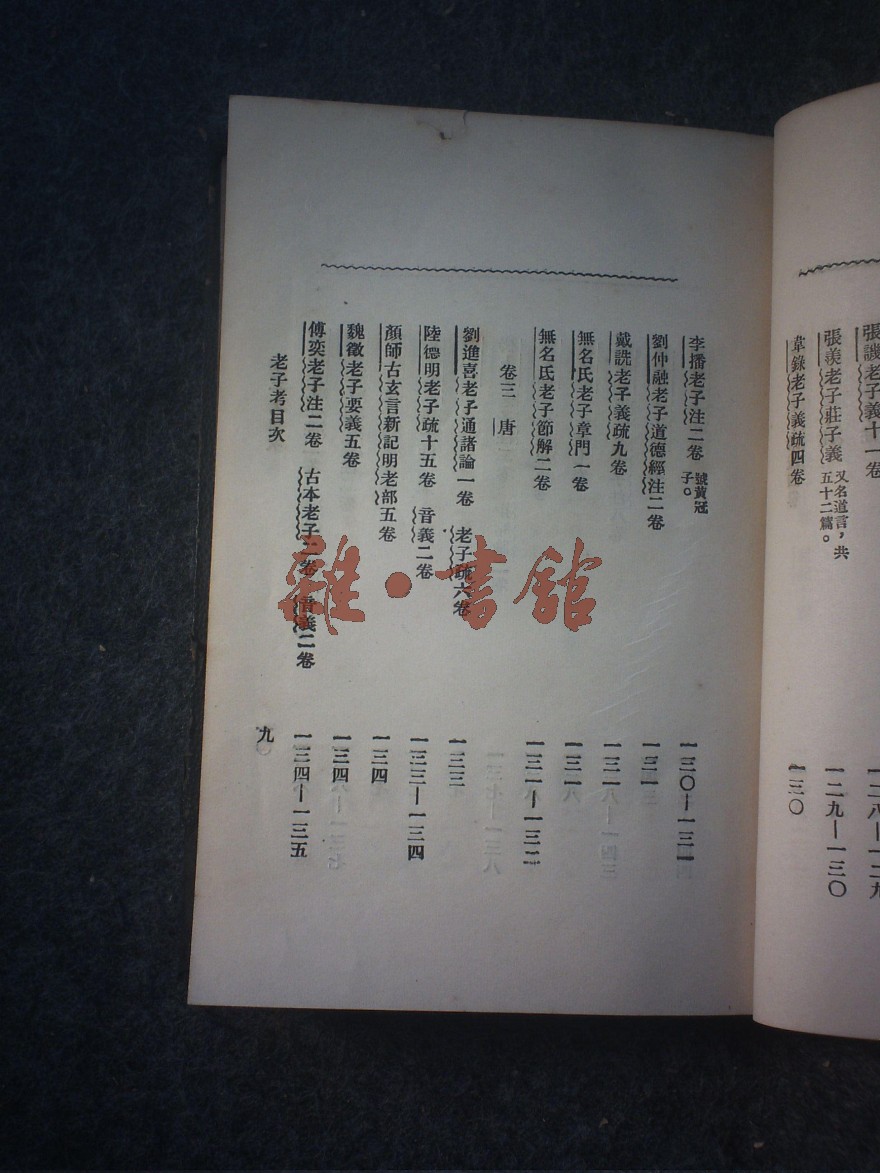 張譏老子義十一卷　一二八—一二九
張羨老子莊子義　又名道言，共五十二篇。　一二九—一三〇
韋錄老子義疏四卷　一三〇
李播老子注二卷　號黃冠子。　一三〇—一三一
劉仲融老子道德經注二卷　一三一
戴詵老子義疏九卷　一三一
無名氏老子章門一卷　一三一
無名氏老子節解二卷　一三一—一三二
卷三　唐
劉進喜老子通諸論一卷　老子疏六卷　一三三
陸德明老子疏十五卷　音義二卷　一三三—一三四
顏師古玄言新記明老部五卷　一三四
魏徵老子要義五卷　一三四
傅奕老子注二卷　古本老子二卷　音義二卷　一三四—一三五
老子考目次　九
雜·書館